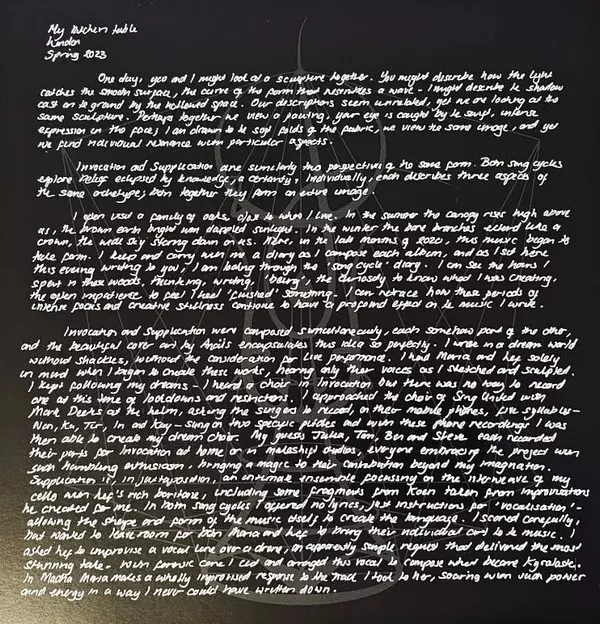 My kitchen table
London
Spring 2023
One day, you and I might look at a sculpture together. You might describe how the light
catches the smooth surface, the curve of the form that resembles a wave - I might describe the shadow
cast on the ground by the hollowed space. Our descriptions seem unrelated, yet we are looking at the
same sculpture. Perhaps together we view a painting, your eye is caught by the sunlit, intense
expression in the face; I am drawn to the soft folds of the fabric, we view the same image, and yet
we find individual resonance with particular aspects.
Invocation and Supplication are similarly two perspectives of the same form. Both song cycles
explore belief eclipsed by knowledge, a certainty; individually, each describes three aspects of
the same archetype; both together they form an entire image.
I often visit a family of oaks, close to where I live. In the summer the canopy rises high above
us, the brown earth bright with dappled sunlight. In the winter the bare branches extend like a
crown, the wide sky staring down on us. Here, in the late months of 2020, this music began to
take form. I keep and carry with me a diary as I compose each album, and as I sit here
this evening writing to you, I am looking through the 'song cycle' diary. I can see the hours I
spent in these woods, thinking, writing, 'being', the curiosity to know what I was creating,
the open impatience to feel I had 'finished' something. I can retrace how these periods of
intense focus and creative stillness continue to have a profound effect on the music I write.
Invocation and Supplication were composed simultaneously, each somehow part of the other,
and the beautiful cover art by encapsulates this idea so perfectly. I wrote in a dream world
without shackles, without the consideration for live performance. I had Maria and solely
in mind when I began to create these works, hearing only their voices as I sketched and sculpted.
I kept following my dreams - I heard a choir in Invocation but there was no way to record
one at this time of lockdowns and restrictions. I approached the choir of Sing United with
Mark at the helm, asking the singers to record, on their mobile phones, five syllables -
Non, Ka, Tir, In and Kay - sung on two specific pitches and with these phone recordings I was
then able to create my dream choir. My guests Julia, Tom, Ben and Steve each recorded
their parts for Invocation at home in makeshift studios, everyone embracing the project with
such humbling enthusiasm, bringing a magic to their contribution beyond my imagination.
Supplication is, in juxtaposition, an intimate ensemble focussing on the interweave of my
cello with rich baritone, including some fragments from Koen taken from improvisations
he created for me. In both song cycles I offered no lyrics, just instructions for 'vocalisation' -
allowing the shape and form of the music itself to create the language. I scored carefully,
but wanted to leave room for both Maria and to bring their individual art to the music. I
asked to improvise a vocal line over a drone, an apparently simple request that delivered the most
stunning take - with forensic care I cut and arranged this vocal to compose what became
In Maria makes a wholly improvised response to the track I took to her, soaring with such power
and energy in a way I never could have written down.